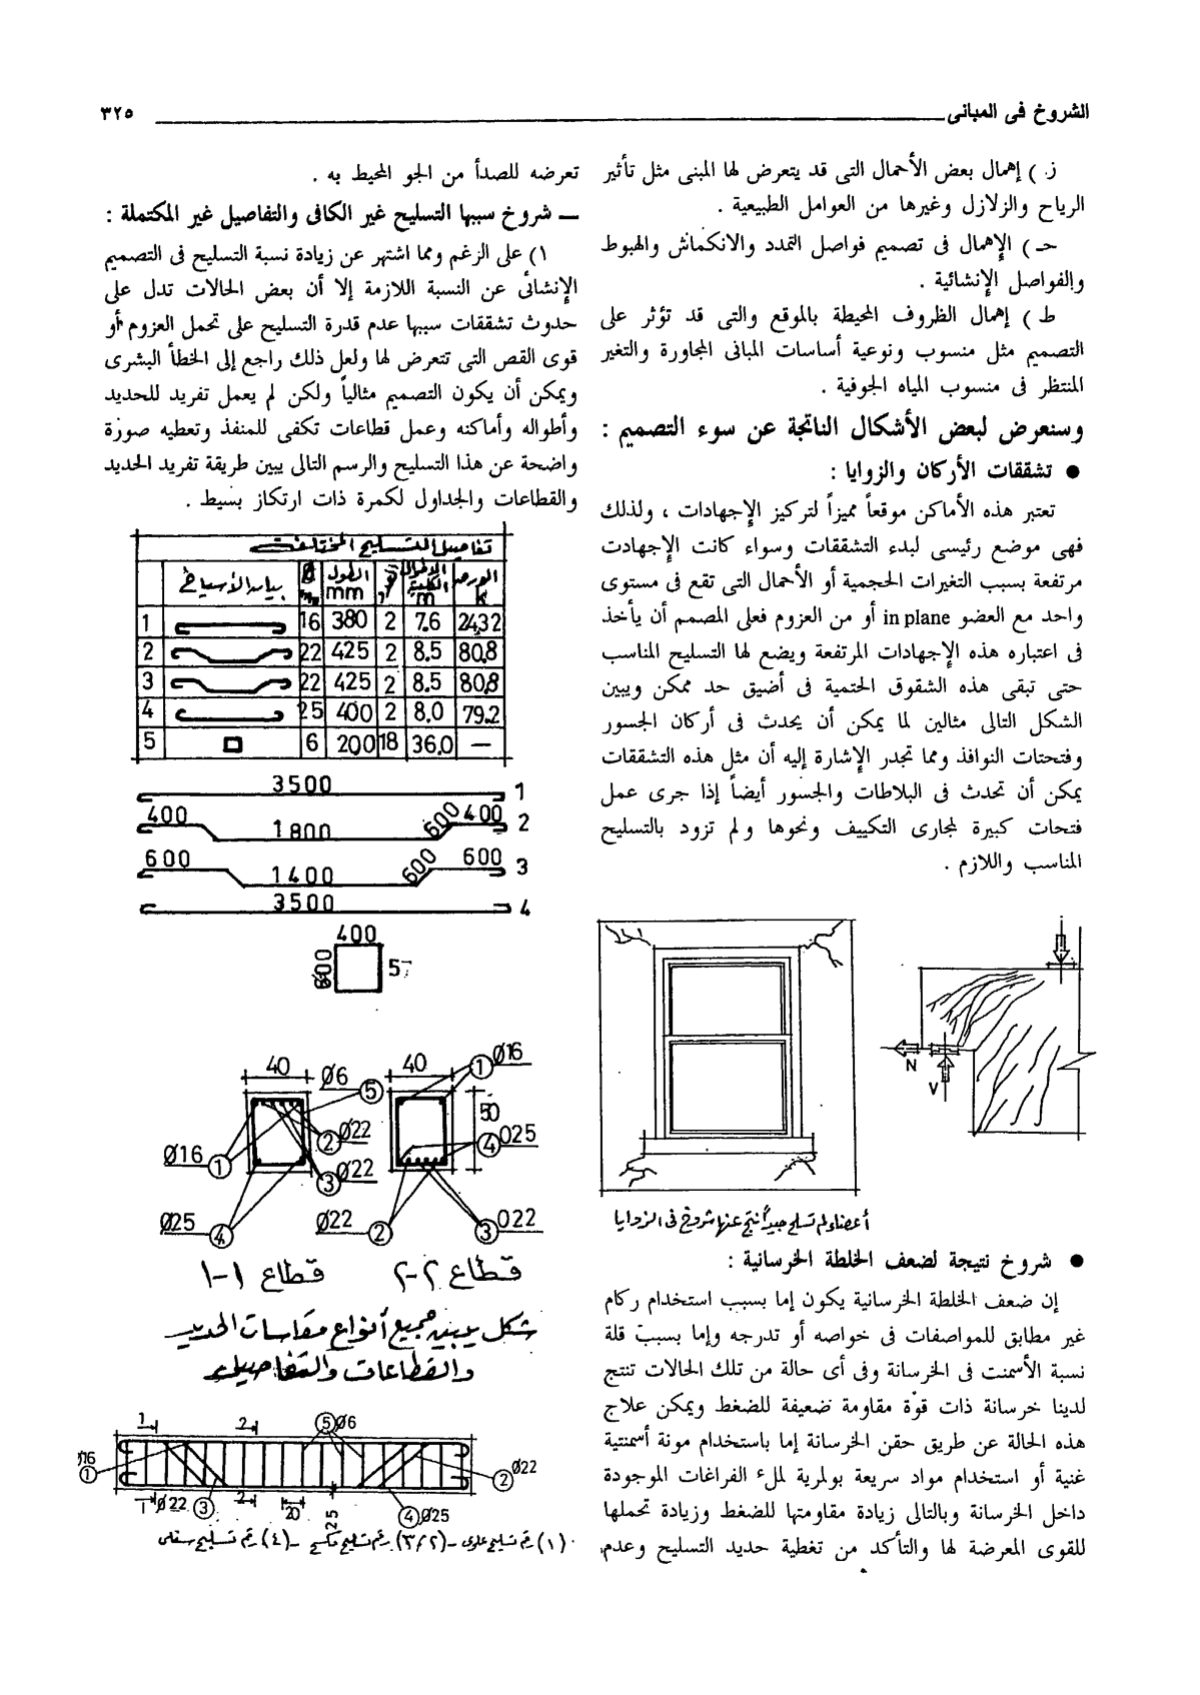 الشروخ فى المبانى
٣٢٥
ز ) إهمال بعض الأحمال التى قد يتعرض لها المبنى مثل تأثير
الرياح والزلازل وغيرها من العوامل الطبيعية .
حـ ) الإهمال فى تصميم فواصل التمدد والانكماش والهبوط
والفواصل الإنشائية .
ط ) إهمال الظروف المحيطة بالموقع والتى قد تؤثر على
التصميم مثل منسوب ونوعية أساسات المبانى المجاورة والتغير
المنتظر فى منسوب المياه الجوفية .
وسنعرض لبعض الأشكال الناتجة عن سوء التصميم :
● تشققات الأركان والزوايا :
تعتبر هذه الأماكن موقعاً مميزاً لتركيز الإجهادات ، ولذلك
فهى موضع رئيسى لبدء التشققات وسواء كانت الإجهادت
مرتفعة بسبب التغيرات الحجمية أو الأحمال التى تقع فى مستوى
واحد مع العضو in plane أو من العزوم فعلى المصمم أن يأخذ
فى اعتباره هذه الإجهادات المرتفعة ويضع لها التسليح المناسب
حتى تبقى هذه الشقوق الحتمية فى أضيق حد ممكن ويبين
الشكل التالى مثالين لما يمكن أن يحدث فى أركان الجسور
وفتحتات النوافذ ومما تجدر الإشارة إليه أن مثل هذه التشققات
يمكن أن تحدث فى البلاطات والجسور أيضاً إذا جرى عمل
فتحات كبيرة لمجارى التكييف ونحوها ولم تزود بالتسليح
المناسب واللازم .
N
V
أعضاء لم تسلح جيداً نتج عنها شروخ فى الزوايا
● شروخ نتيجة لضعف الخلطة الخرسانية :
إن ضعف الخلطة الخرسانية يكون إما بسبب استخدام ركام
غير مطابق للمواصفات فى خواصه أو تدرجه وإما بسبب قلة
نسبة الأسمنت فى الخرسانة وفى أى حالة من تلك الحالات تنتج
لدينا خرسانة ذات قوة مقاومة ضعيفة للضغط ويمكن علاج
هذه الحالة عن طريق حقن الخرسانة إما باستخدام مونة أسمنتية
غنية أو استخدام مواد سريعة بولمرية لملء الفراغات الموجودة
داخل الخرسانة وبالتالى زيادة مقاومتها للضغط وزيادة تحملها
للقوى المعرضة لها والتأكد من تغطية حديد التسليح وعدم
تعرضه للصدأ من الجو المحيط به .
ــ شروخ سببها التسليح غير الكافى والتفاصيل غير المكتملة :
١) على الزغم ومما اشتهر عن زيادة نسبة التسليح فى التصميم
الإنشائى عن النسبة اللازمة إلا أن بعض الحالات تدل على
حدوث تشققات سببها عدم قدرة التسليح على تحمل العزوم أو
قوى القص التى تتعرض لها ولعل ذلك راجع إلى الخطأ البشرى
ويمكن أن يكون التصميم مثالياً ولكن لم يعمل تفريد للحديد
وأطواله وأماكنه وعمل قطاعات تكفى للمنفذ وتعطيه صورة
واضحة عن هذا التسليح والرسم التالى يبين طريقة تفريد الحديد
والقطاعات والجداول لكمرة ذات ارتكاز بسيط .
تفاصيل التسليح المختلفة
بيان الأسياخ Ø mm الطول mm الكلية m k
1 16 380 2 7.6 24.32
2 22 425 2 8.5 80.8
3 22 425 2 8.5 80.8
4 25 400 2 8.0 79.2
5 6 200 18 36.0 —
3500 1
400 1800 600 400 2
600 1400 600 600 3
3500 4
400
600 5
40 Ø6 40 Ø16
5 1
50
Ø22 Ø25
2 4
Ø16 1 Ø22 3
Ø25 4 Ø22 2 3 Ø22
قطاع ١-١ قطاع ٢-٢
شكل يبين جميع أنواع مقاسات الحديد
والقطاعات والتفاصيل
1 2 5 Ø6
Ø16 1 2 Ø22
1 Ø22 3 2 20 25 4 Ø25
(١) تسليح علوى - (٣،٢) تسليح مكسح - (٤) تسليح سفلى